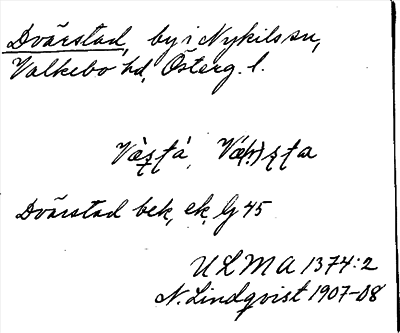 Dvärstad, by i Nykils sn,
Valkebo hd, Österg. l.
Dvärstad bek, ek, lj 45
ULMA 1374:2
N. Lindqvist 1907-08